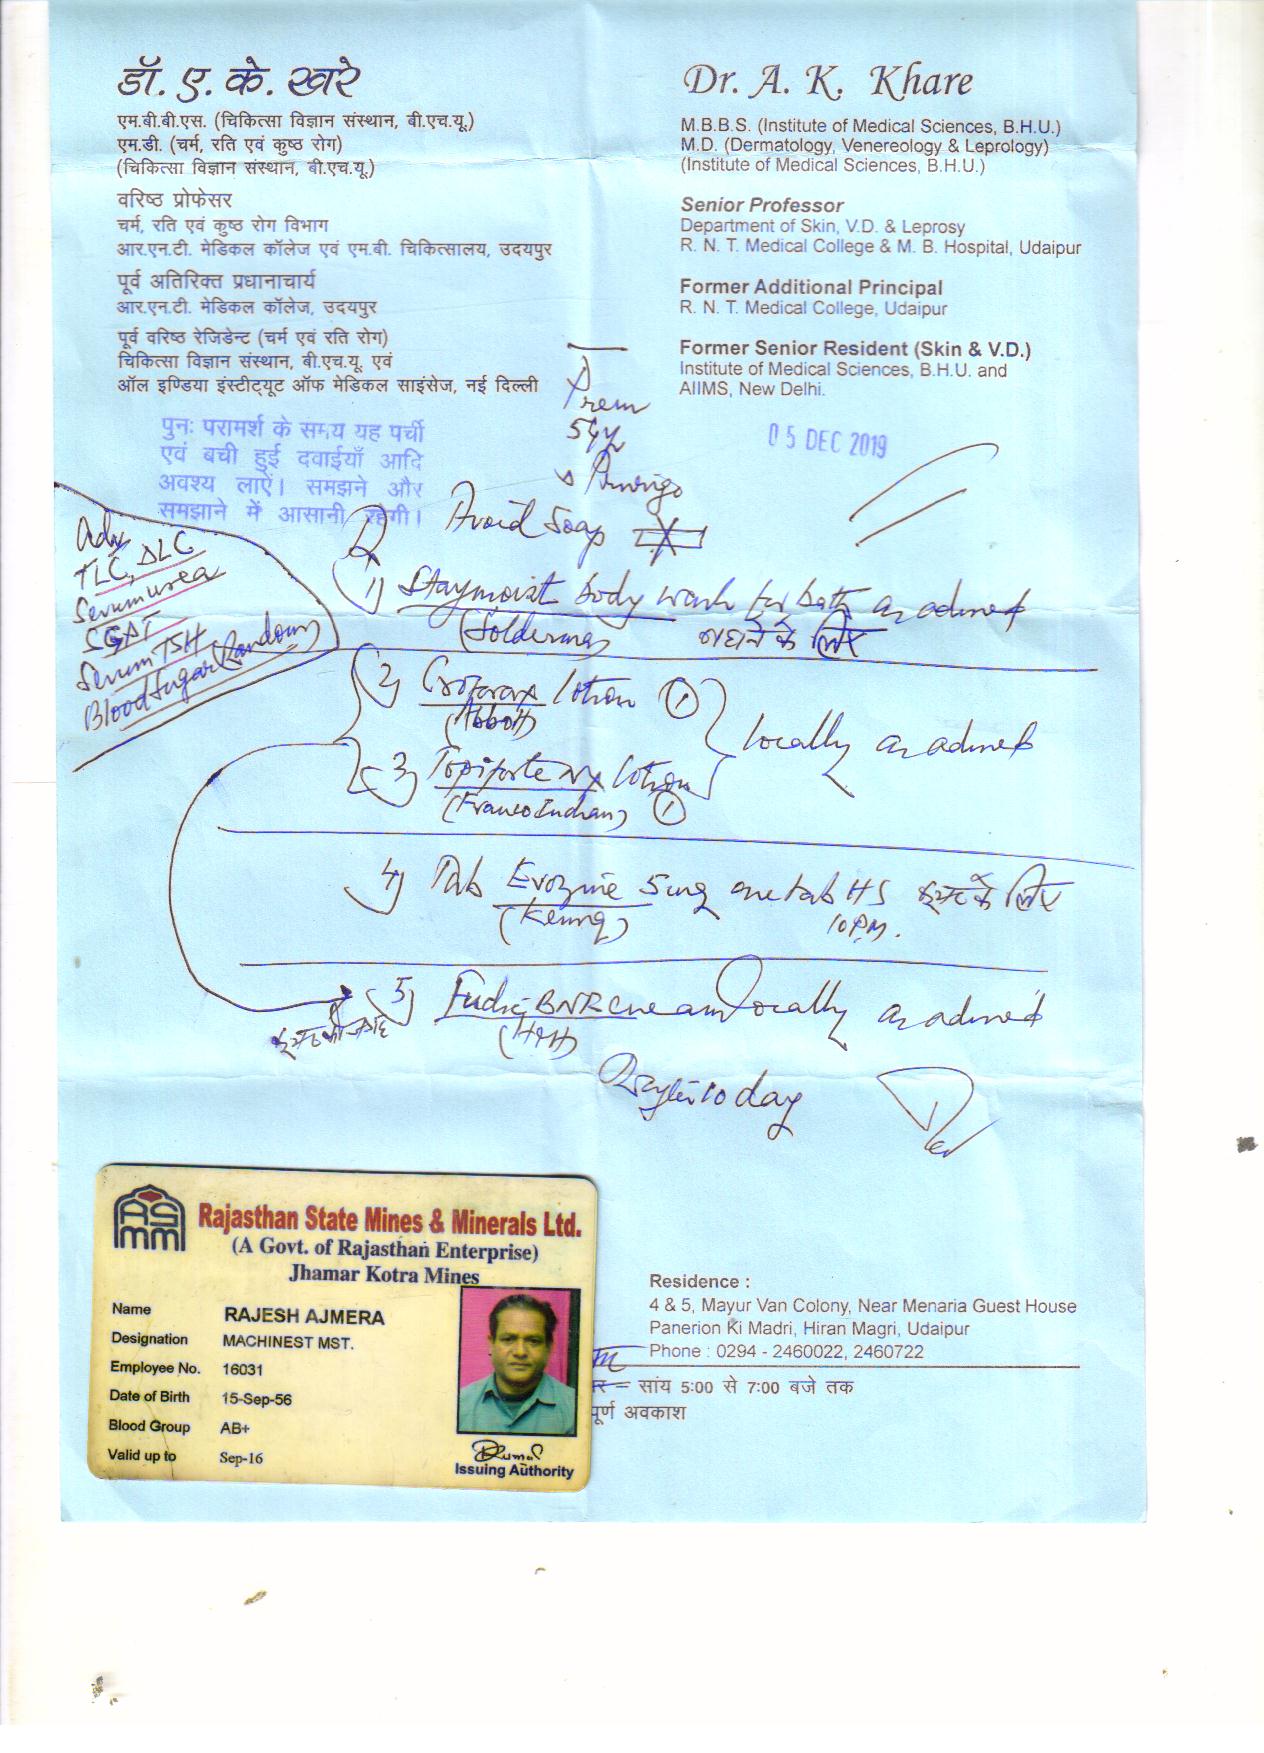 डॉ. ए. के. खरे
एम.बी.बी.एस. (चिकित्सा विज्ञान संस्थान, बी.एच.यू.)
एम.डी. (चर्म, रति एवं कुष्ठ रोग)
(चिकित्सा विज्ञान संस्थान, बी.एच.यू.)
वरिष्ठ प्रोफेसर
चर्म, रति एवं कुष्ठ रोग विभाग
आर.एन.टी. मेडिकल कॉलेज एवं एम.बी. चिकित्सालय, उदयपुर
पूर्व अतिरिक्त प्रधानाचार्य
आर.एन.टी. मेडिकल कॉलेज, उदयपुर
पूर्व वरिष्ठ रेजिडेन्ट (चर्म एवं रति रोग)
चिकित्सा विज्ञान संस्थान, बी.एच.यू. एवं
ऑल इण्डिया इंस्टीट्यूट ऑफ मेडिकल साइंसेज, नई दिल्ली
Dr. A. K. Khare
M.B.B.S. (Institute of Medical Sciences, B.H.U.)
M.D. (Dermatology, Venereology & Leprology)
(Institute of Medical Sciences, B.H.U.)
Senior Professor
Department of Skin, V.D. & Leprosy
R. N. T. Medical College & M. B. Hospital, Udaipur
Former Additional Principal
R. N. T. Medical College, Udaipur
Former Senior Resident (Skin & V.D.)
Institute of Medical Sciences, B.H.U. and
AIIMS, New Delhi.
पुनः परामर्श के समय यह पर्ची
एवं बची हुई दवाईयाँ आदि
अवश्य लाऐं। समझने और
समझाने में आसानी रहेगी।
Prem
54y
05 DEC 2019
Avoid Soap
Adv
TLC, DLC
Serum urea
SGPT
Serum TSH
Blood Sugar (Random)
1) Staymoist body wash for bath as advised
नहाने के लिए
2) Crotorax lotion 1
(Abbott)
3) Topiforte lotion
(Franco Indian) 1
locally as advised
4) Tab 5mg one tab HS के लिए
10 P.M.
5) Fudic BNR Cream locally as advised
10 day
Rajasthan State Mines & Minerals Ltd.
(A Govt. of Rajasthan Enterprise)
Jhamar Kotra Mines
Name RAJESH AJMERA
Designation MACHINEST MST.
Employee No. 16031
Date of Birth 15-Sep-56
Blood Group AB+
Valid up to Sep-16
Issuing Authority
Residence :
4 & 5, Mayur Van Colony, Near Menaria Guest House
Panerion Ki Madri, Hiran Magri, Udaipur
Phone : 0294 - 2460022, 2460722
सांय 5:00 से 7:00 बजे तक
पूर्ण अवकाश